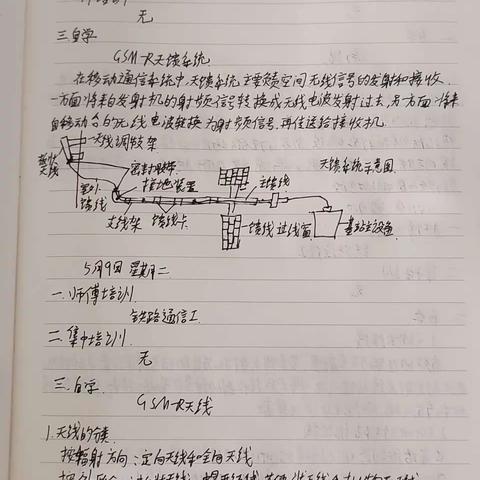 无
三.自学
GSM-R天馈系统
在移动通信系统中,天馈系统主要负责空间无线信号的发射和接收.
一方面将来自发射机的射频信号转换成无线电波发射过去,另方面将来
自移动台的无线电波转换为射频信号,再传送给接收机.
天线调节支架
天线
密封胶带
接地装置
室外
馈线
主馈线
天馈系统示意图.
支线架
馈线卡
馈线过线窗
基站主设备.
5月9日 星期二.
一.师傅培训.
铁路通信工.
二.集中培训
无
三.自学.
GSM-R天线
1.天线的分类.
按辐射方向:定向天线和全向天线